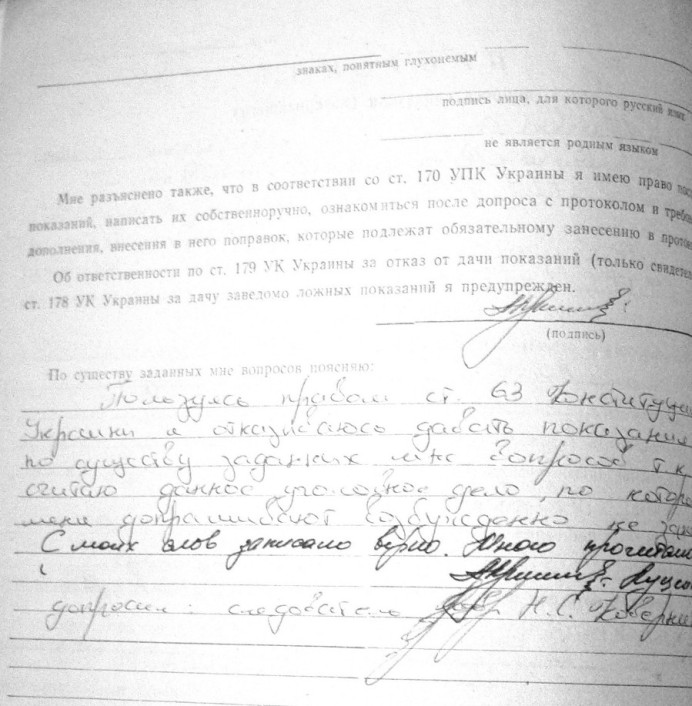 знаках, понятным глухонемым
подпись лица, для которого русский язык
не является родным языком
Мне разъяснено также, что в соответствии со ст. 170 УПК Украины я имею право
показаний, написать их собственноручно, ознакомиться после допроса с протоколом и
дополнения, внесения в него поправок, которые подлежат обязательному занесению в
Об ответственности по ст. 179 УК Украины за отказ от дачи показаний (только
ст. 178 УК Украины за дачу заведомо ложных показаний я предупрежден.
(подпись)
По существу заданных мне вопросов поясняю:
Пользуясь правом ст. 63 Конституции
Украины я отказываюсь давать показания
по существу заданных мне вопросов т.к
считаю данное уголовное дело, по
меня допрашивают возбужденно не
С моих слов записано верно. Мною
допросил: следователь Н.С.